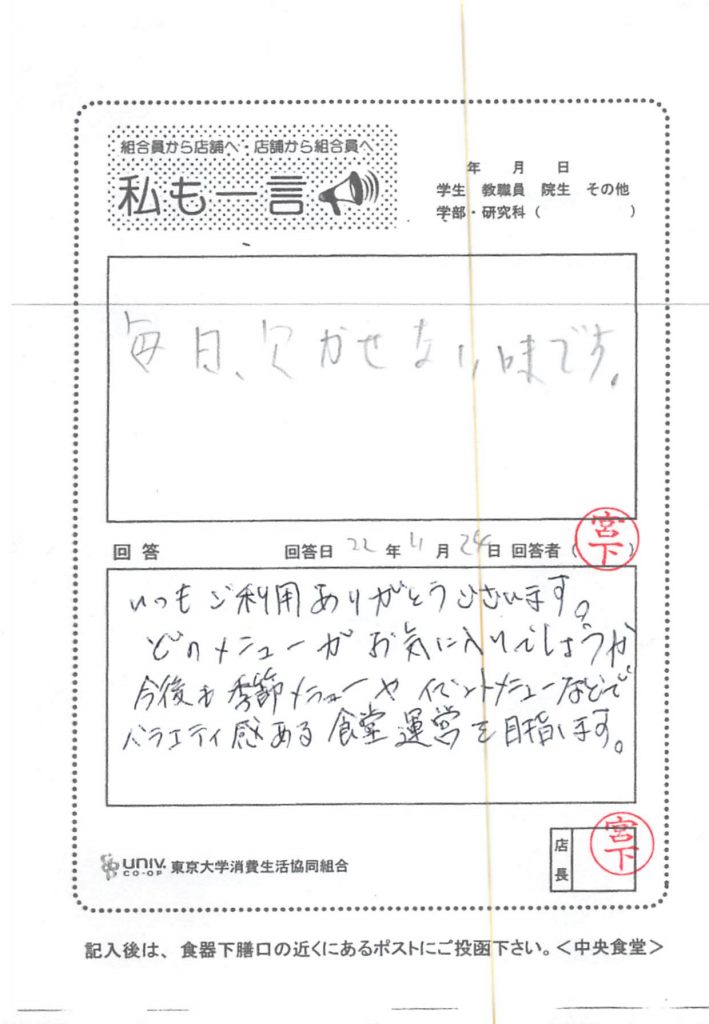 組合員から店舗へ・店舗から組合員へ
私も一言
年 月 日
学生 教職員 院生 その他
学部・研究科（ ）
毎日、欠かせない味です。
回答 回答日 22年11月24日 回答者（宮下）
いつもご利用ありがとうございます。
どのメニューがお気に入りでしょうか
今後も季節メニューやイベントメニューなどで
バラエティ感ある食堂運営を目指します。
宮下
店長
UNIV. CO-OP 東京大学消費生活協同組合
記入後は、食器下膳口の近くにあるポストにご投函下さい。＜中央食堂＞